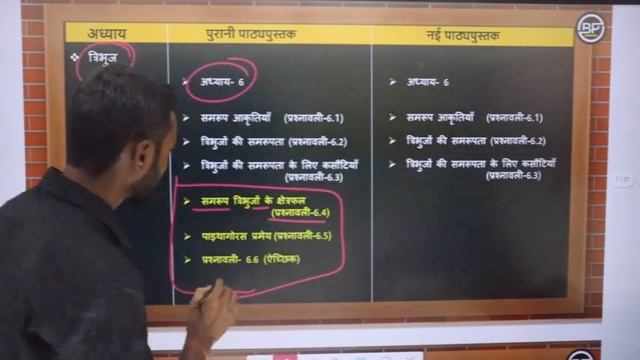 अध्याय
पुरानी पाठ्यपुस्तक
नई पाठ्यपुस्तक
BP
❖ त्रिभुज
➢ अध्याय- 6
➢ समरूप आकृतियाँ (प्रश्नावली-6.1)
➢ त्रिभुजों की समरूपता (प्रश्नावली-6.2)
➢ त्रिभुजों की समरूपता के लिए कसौटियाँ
(प्रश्नावली-6.3)
➢ समरूप त्रिभुजों के क्षेत्रफल
(प्रश्नावली-6.4)
➢ पाइथागोरस प्रमेय (प्रश्नावली-6.5)
➢ प्रश्नावली- 6.6 (ऐच्छिक)
➢ अध्याय- 6
➢ समरूप आकृतियाँ (प्रश्नावली-6.1)
➢ त्रिभुजों की समरूपता (प्रश्नावली-6.2)
➢ त्रिभुजों की समरूपता के लिए कसौटियाँ
(प्रश्नावली-6.3)